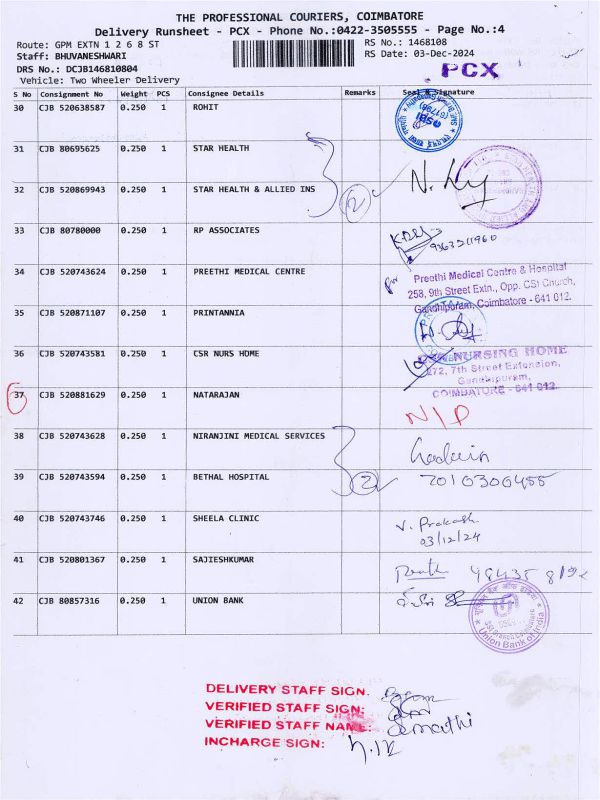 THE PROFESSIONAL COURIERS, COIMBATORE
Delivery Runsheet - PCX - Phone No.:0422-3505555 - Page No.:4
Route: GPM EXTN 1 2 6 8 ST RS No.: 1468108
Staff: BHUVANESHWARI RS Date: 03-Dec-2024
DRS No.: DCJB146810804 PCX
Vehicle: Two Wheeler Delivery
S No Consignment No Weight PCS Consignee Details Remarks Seal & Signature
30 CJB 520638587 0.250 1 ROHIT
SBI
31 CJB 80695625 0.250 1 STAR HEALTH
32 CJB 520869943 0.250 1 STAR HEALTH & ALLIED INS 2
33 CJB 80780000 0.250 1 RP ASSOCIATES
34 CJB 520743624 0.250 1 PREETHI MEDICAL CENTRE
Preethi Medical Centre & Hospital
258, 9th Street Extn., Opp. CSI Church,
Gandhipuram, Coimbatore - 641 012.
35 CJB 520871107 0.250 1 PRINTANNIA
36 CJB 520743581 0.250 1 CSR NURS HOME
NURSING HOME
272, 7th Street Extension,
Gandhipuram,
COIMBATORE - 641 012.
37 CJB 520881629 0.250 1 NATARAJAN
N/P
38 CJB 520743628 0.250 1 NIRANJINI MEDICAL SERVICES
39 CJB 520743594 0.250 1 BETHAL HOSPITAL 2 7010300455
40 CJB 520743746 0.250 1 SHEELA CLINIC V. Prakash
03/12/24
41 CJB 520801367 0.250 1 SAJIESHKUMAR
42 CJB 80857316 0.250 1 UNION BANK
Union Bank of India
DELIVERY STAFF SIGN.
VERIFIED STAFF SIGN:
VERIFIED STAFF NAME:
INCHARGE SIGN: